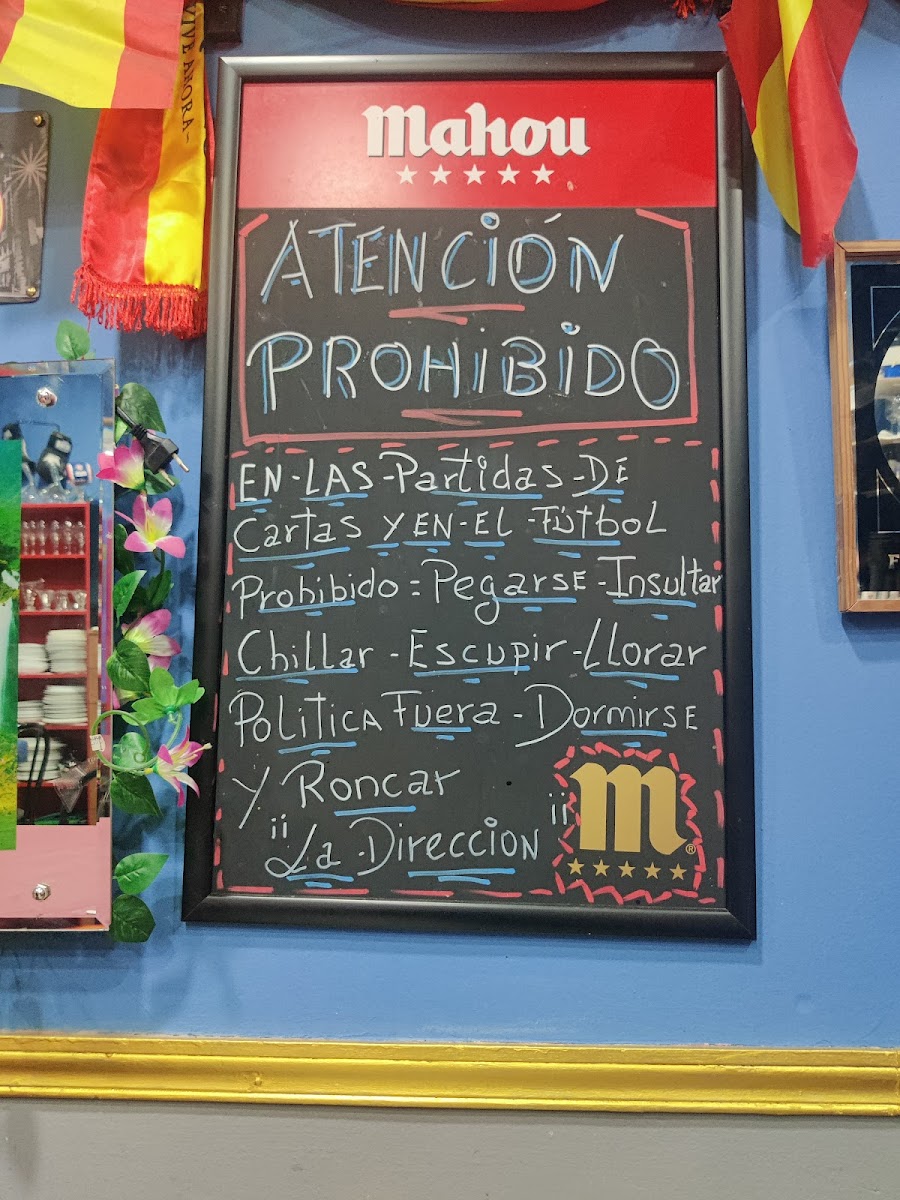 VIVE AHORA-
Mahou
ATENCIÓN
PROHIBIDO
EN-LAS-Partidas-DE
Cartas Y EN-EL-FÚTBOL
Prohibido=Pegarse-Insultar
Chillar-Escupir-Llorar
Politica Fuera-Dormirse
Y Roncar
¡¡La-Direccion¡¡
m®
F